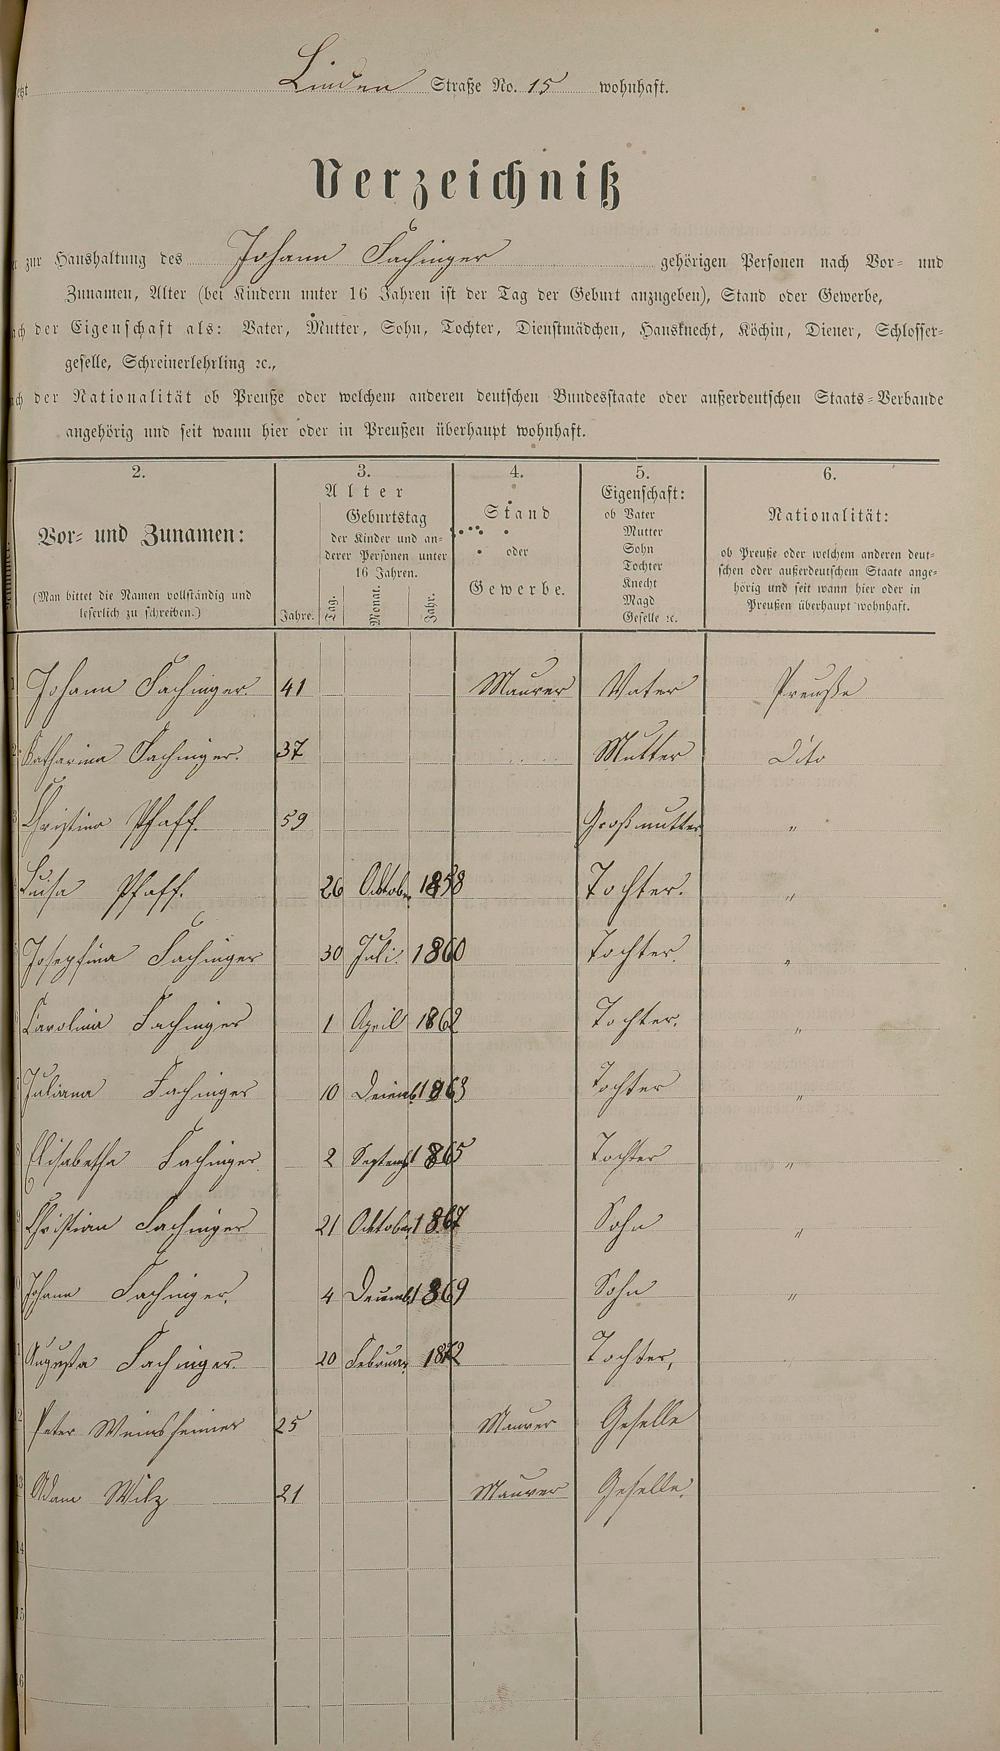 Linden Straße No. 15 wohnhaft.
Verzeichniß
zur Haushaltung des Johann Fachinger gehörigen Personen nach Vor- und
Zunamen, Alter (bei Kindern unter 16 Jahren ist der Tag der Geburt anzugeben), Stand oder Gewerbe,
der Eigenschaft als: Vater, Mutter, Sohn, Tochter, Dienstmädchen, Hausknecht, Köchin, Diener, Schlosser-
geselle, Schreinerlehrling ꝛc.,
der Nationalität ob Preuße oder welchem anderen deutschen Bundesstaate oder außerdeutschen Staats-Verbande
angehörig und seit wann hier oder in Preußen überhaupt wohnhaft.
2. 3. 4. 5. 6.
Vor- und Zunamen:
(Man bittet die Namen vollständig und
leserlich zu schreiben.)
Alter
Geburtstag
der Kinder und an-
derer Personen unter
16 Jahren.
Jahre. Tag. Monat. Jahr.
Stand
oder
Gewerbe.
Eigenschaft:
ob Vater
Mutter
Sohn
Tochter
Knecht
Magd
Geselle ꝛc.
Nationalität:
ob Preuße oder welchem anderen deut-
schen oder außerdeutschem Staate ange-
hörig und seit wann hier oder in
Preußen überhaupt wohnhaft.
Johann Fachinger. 41 Maurer Vater Preuße
Katharina Fachinger. 37 Mutter Dito
Christina Pfaff. 59 Großmutter "
Luisa Pfaff. 26 Oktober 1858 Tochter. "
Josephina Fachinger 30 Juli. 1860 Tochter. "
Carolina Fachinger 1 April 1862 Tochter. "
Juliana Fachinger 10 1863 Tochter "
Elisabetha Fachinger. 2 Septemb 1865 Tochter "
Christian Fachinger 21 Oktober 1867 Sohn "
Johann Fachinger. 4 Decemb 1869 Sohn "
Augusta Fachinger. 20 Februar 1872 Tochter,
12 Peter Weinsheimer 25 Maurer Geselle
13 Adam Wilz 21 Maurer Geselle.
14
15
16